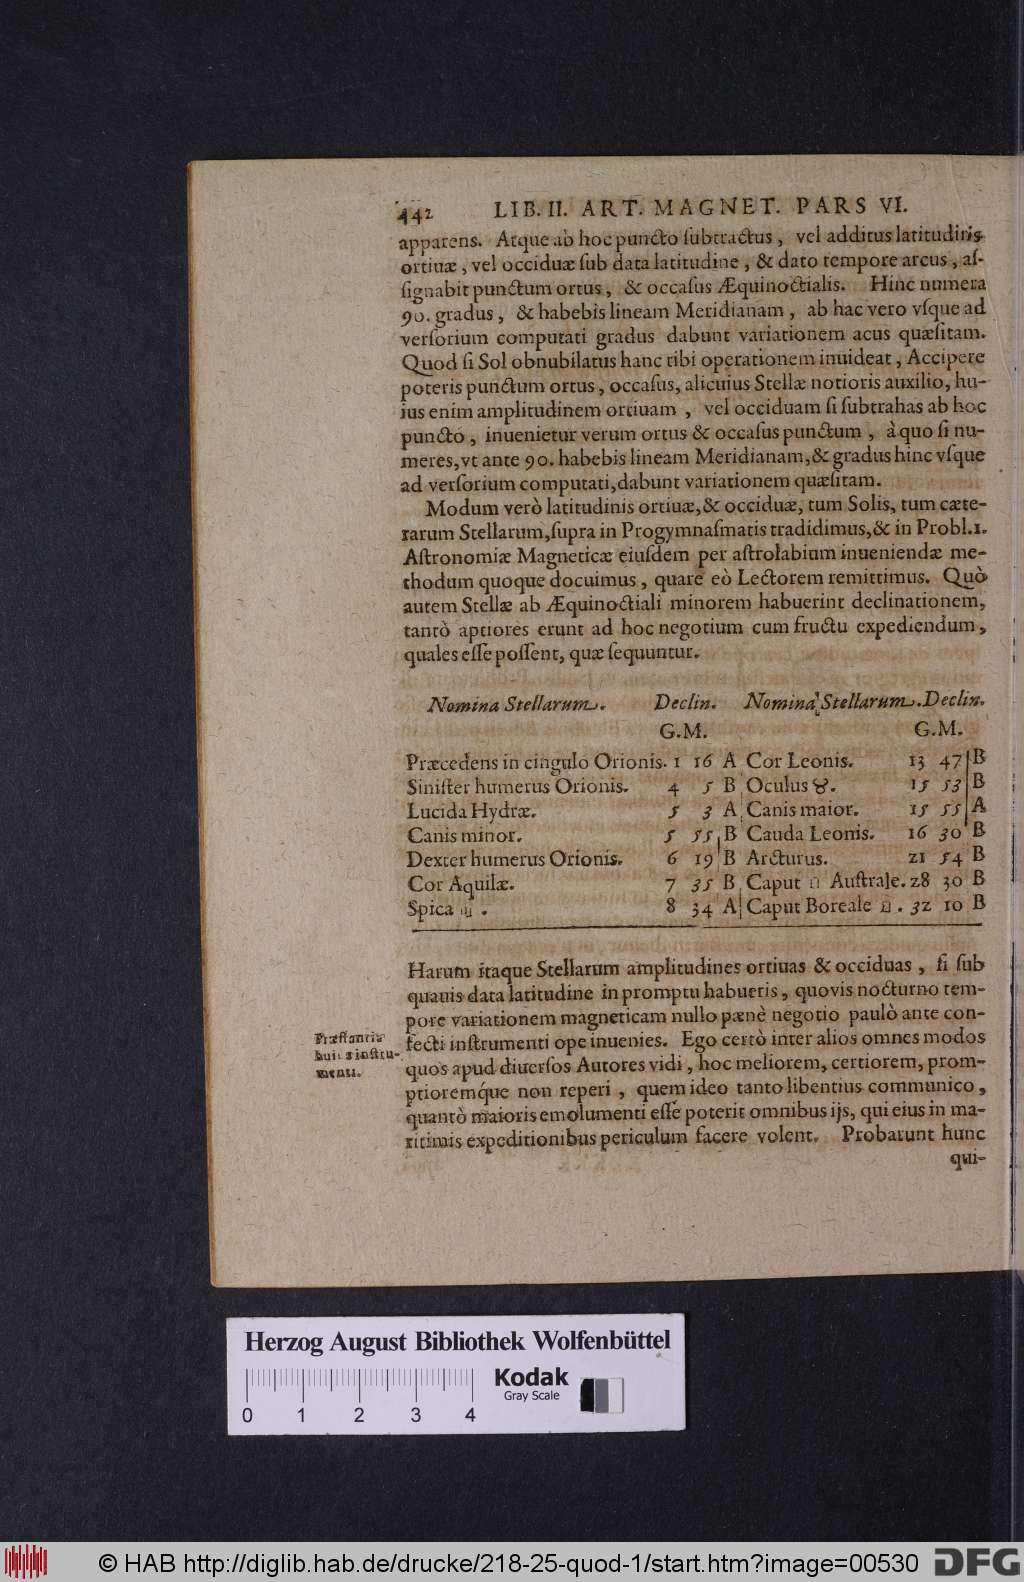 442 LIB. II. ART. MAGNET. PARS VI.
apparens. Atque ab hoc puncto ſubtractus, vel additus latitudinis
ortiuæ, vel occiduæ ſub data latitudine, & dato tempore arcus, aſ-
ſignabit punctum ortus, & occaſus Æquinoctialis. Hinc numera
90. gradus, & habebis lineam Meridianam, ab hac vero vſque ad
verſorium computati gradus dabunt variationem acus quæſitam.
Quod ſi Sol obnubilatus hanc tibi operationem inuideat, Accipere
poteris punctum ortus, occaſus, alicuius Stellæ notioris auxilio, hu-
ius enim amplitudinem ortiuam, vel occiduam ſi ſubtrahas ab hoc
puncto, inuenietur verum ortus & occaſus punctum, à quo ſi nu-
meres, vt ante 90. habebis lineam Meridianam, & gradus hinc vſque
ad verſorium computati, dabunt variationem quæſitam.
Modum verò latitudinis ortiuæ, & occiduæ, tum Solis, tum cæte-
rarum Stellarum, ſupra in Progymnaſmatis tradidimus, & in Probl. 1.
Aſtronomiæ Magneticæ eiuſdem per aſtrolabium inueniendæ me-
thodum quoque docuimus, quare eò Lectorem remittimus. Quò
autem Stellæ ab Æquinoctiali minorem habuerint declinationem,
tantò aptiores erunt ad hoc negotium cum fructu expediendum,
quales eſſe poſſent, quæ ſequuntur.
Nomina Stellarum. Declin. Nomina Stellarum. Declin.
G. M. G. M.
Præcedens in cingulo Orionis. 1 16 A Cor Leonis. 13 47 B
Siniſter humerus Orionis. 4 5 B Oculus ♉. 15 53 B
Lucida Hydræ. 5 3 A Canis maior. 15 55 A
Canis minor. 5 55 B Cauda Leonis. 16 30 B
Dexter humerus Orionis. 6 19 B Arcturus. 21 54 B
Cor Aquilæ. 7 35 B Caput ♊ Auſtrale. 28 30 B
Spica ♍. 8 34 A Caput Boreale ♊. 32 10 B
Harum itaque Stellarum amplitudines ortiuas & occiduas, ſi ſub
quauis data latitudine in promptu habueris, quovis nocturno tem-
pore variationem magneticam nullo pænè negotio paulò ante con-
fecti inſtrumenti ope inuenies. Ego certò inter alios omnes modos
quos apud diuerſos Autores vidi, hoc meliorem, certiorem, prom-
ptioremq́ue non reperi, quem ideo tanto libentius communico,
quantò maioris emolumenti eſſe poterit omnibus ijs, qui eius in ma-
ritimis expeditionibus periculum facere volent. Probarunt hunc
qui-
Præſtantia
huius inſtru-
menti.
Herzog August Bibliothek Wolfenbüttel
Kodak
Gray Scale
0 1 2 3 4
© HAB http://diglib.hab.de/drucke/218-25-quod-1/start.htm?image=00530
DFG